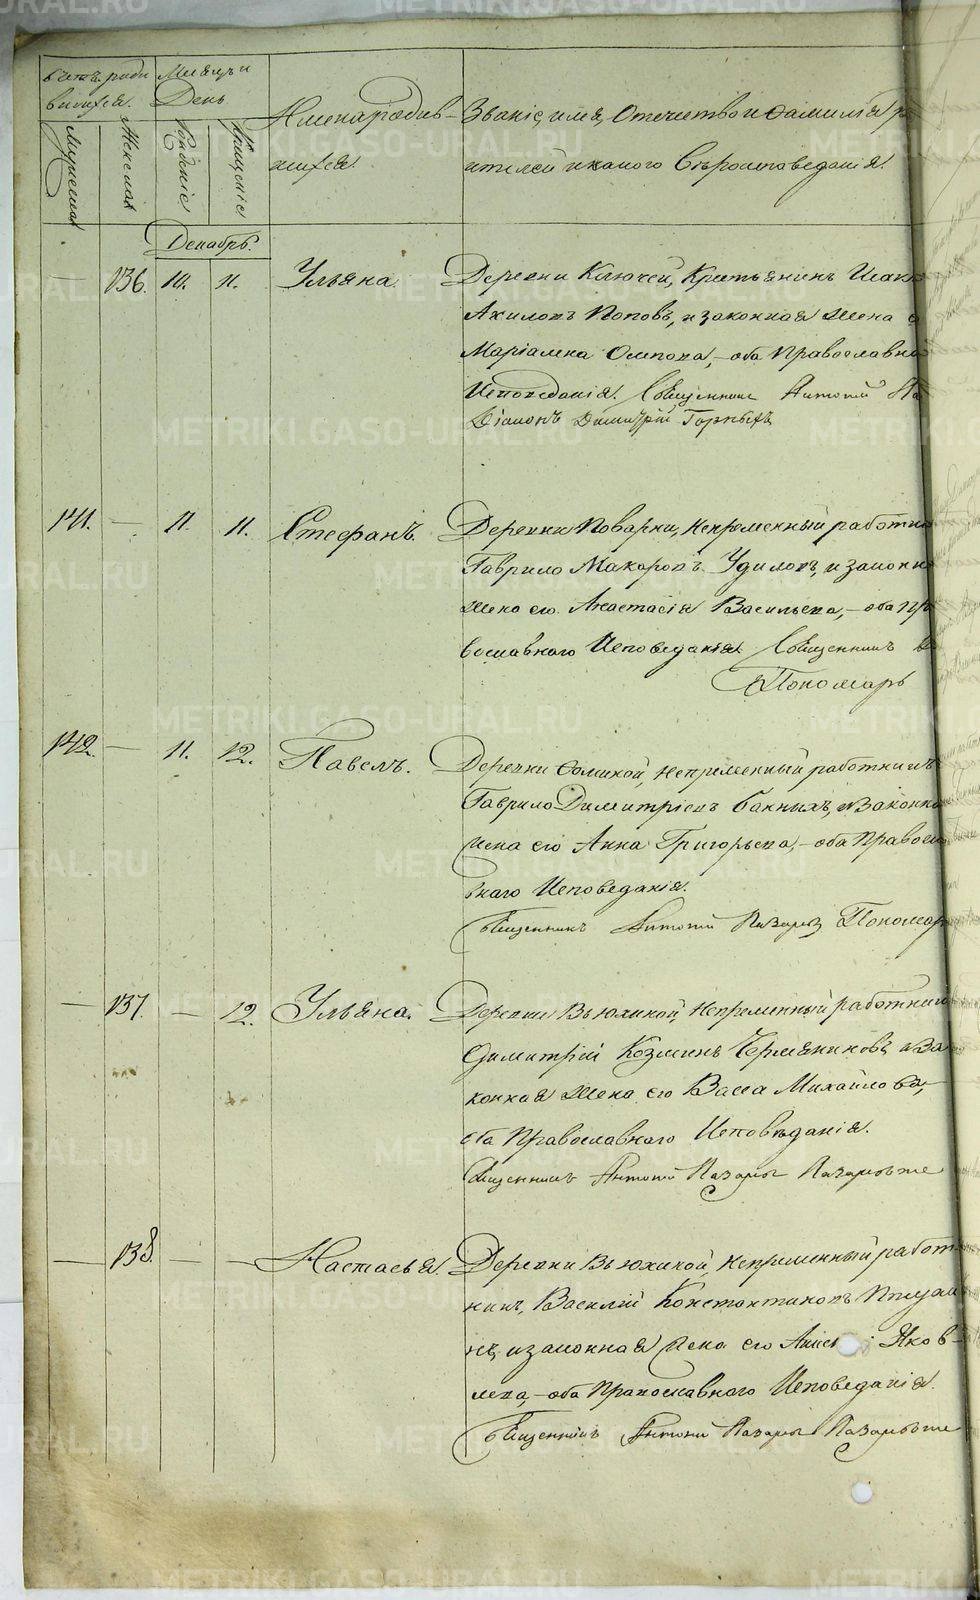 Счетъ роди Месяцъ и
вшихся. День
Мужеска
Женска
Рожденіе
Крещеніе
Имена родив-
шихся
Званіе, имя, Отчество и Фамилія ро
ителей и какого Вѣроисповеданія.
Декабрь.
— 136. 10. 11. Ульяна. Деревни Ключей, Крестьянинъ Исаакъ
Поповъ, и законная жена
оба Православнаго
Исповеданія. Священникъ Антоній
Діаконъ Димитрій Горныхъ
141. — 11. 11. Стефанъ. Деревни Поварни, Непременный работни
Гаврило Макаровъ Удиловъ, и законн
жена его Анастасія Васильева, – оба пр
вославнаго Исповеданія. Священникъ
Пономарь
142. — 11. 12. Павелъ. Деревни Фоминой, Непременный работникъ
Гаврило Димитріевъ Банныхъ, и Законна
жена его Анна Григорьева, – оба Правосла
внаго Исповеданія.
Священникъ Антоній Лазаревъ Пономар
— 137. — 12. Ульяна. Деревни Вьюхиной, Непременный работник
Димитрій Козминъ Чермяниновъ и За
конная жена его Васса Михайлова,
оба Православнаго Исповѣданія.
Священникъ Антоній Лазаревъ
— 138. — — Настасья. Деревни Вьюхиной, Непременный работ
никъ, Василій Константиновъ
нъ, и законная жена его Яков-
лева, – оба Православнаго Исповеданія.
Священникъ Антоній Лазаревъ
METRIKI.GASO-URAL.RU